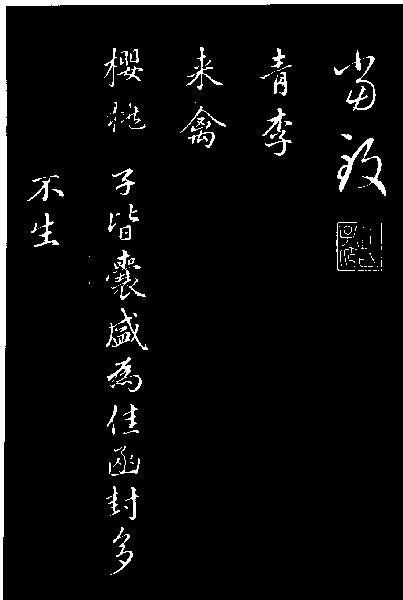 當致
青李
来禽
櫻桃 子皆囊盛為佳函封多
不生